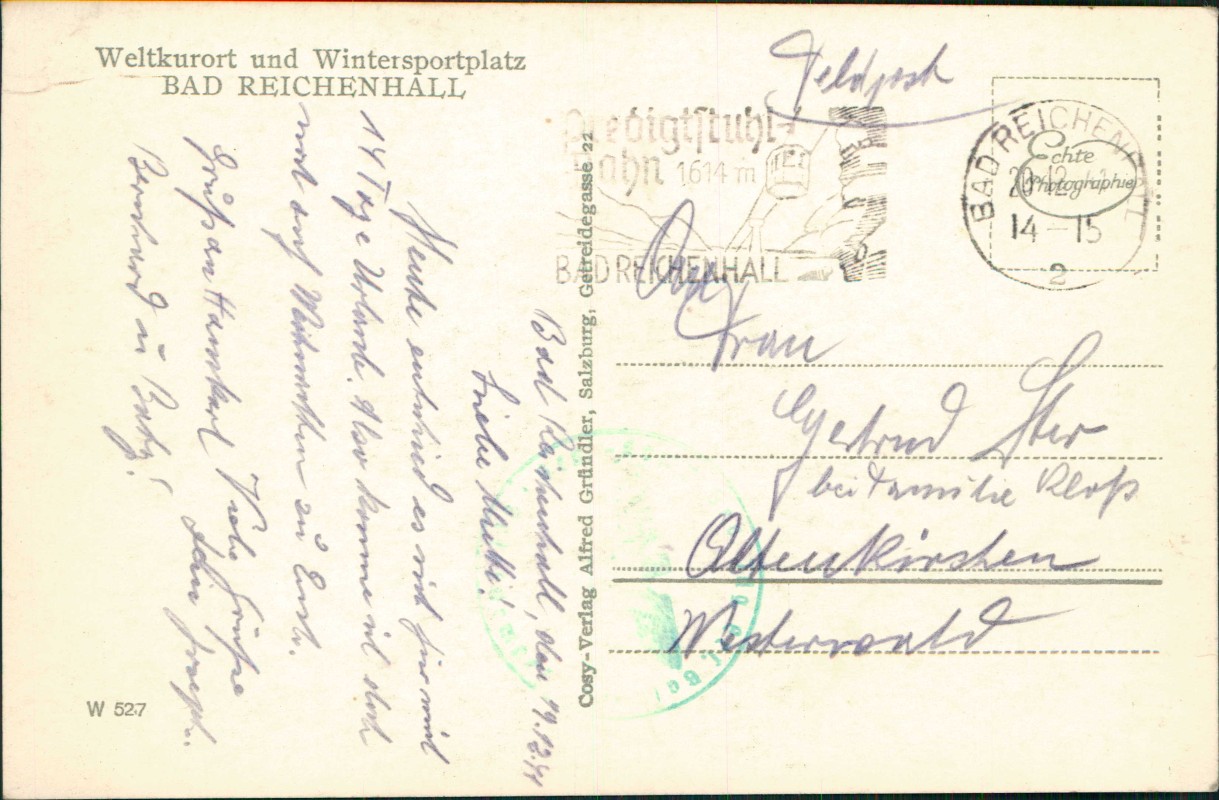 Weltkurort und Wintersportplatz
BAD REICHENHALL
Feldpost
Predigtstuhl-
Bahn 1614 m
BAD REICHENHALL
BAD REICHENHALL
20.12
14-15
2
Echte
Photographie
Cosy-Verlag Alfred Gründler, Salzburg, Getreidegasse 22
W 527
Bad Reichenhall, den 19.12.41
Liebe
Heute entschied es sich für mich
14 Tage Urlaub. Also komme ich doch
noch auf Weihnachten zu Euch.
Gruß an Viele Grüße
Bernhard u.
Dein Joseph.
Frau
Gertrud
bei Familie Kloß
Altenkirchen
Westerwald